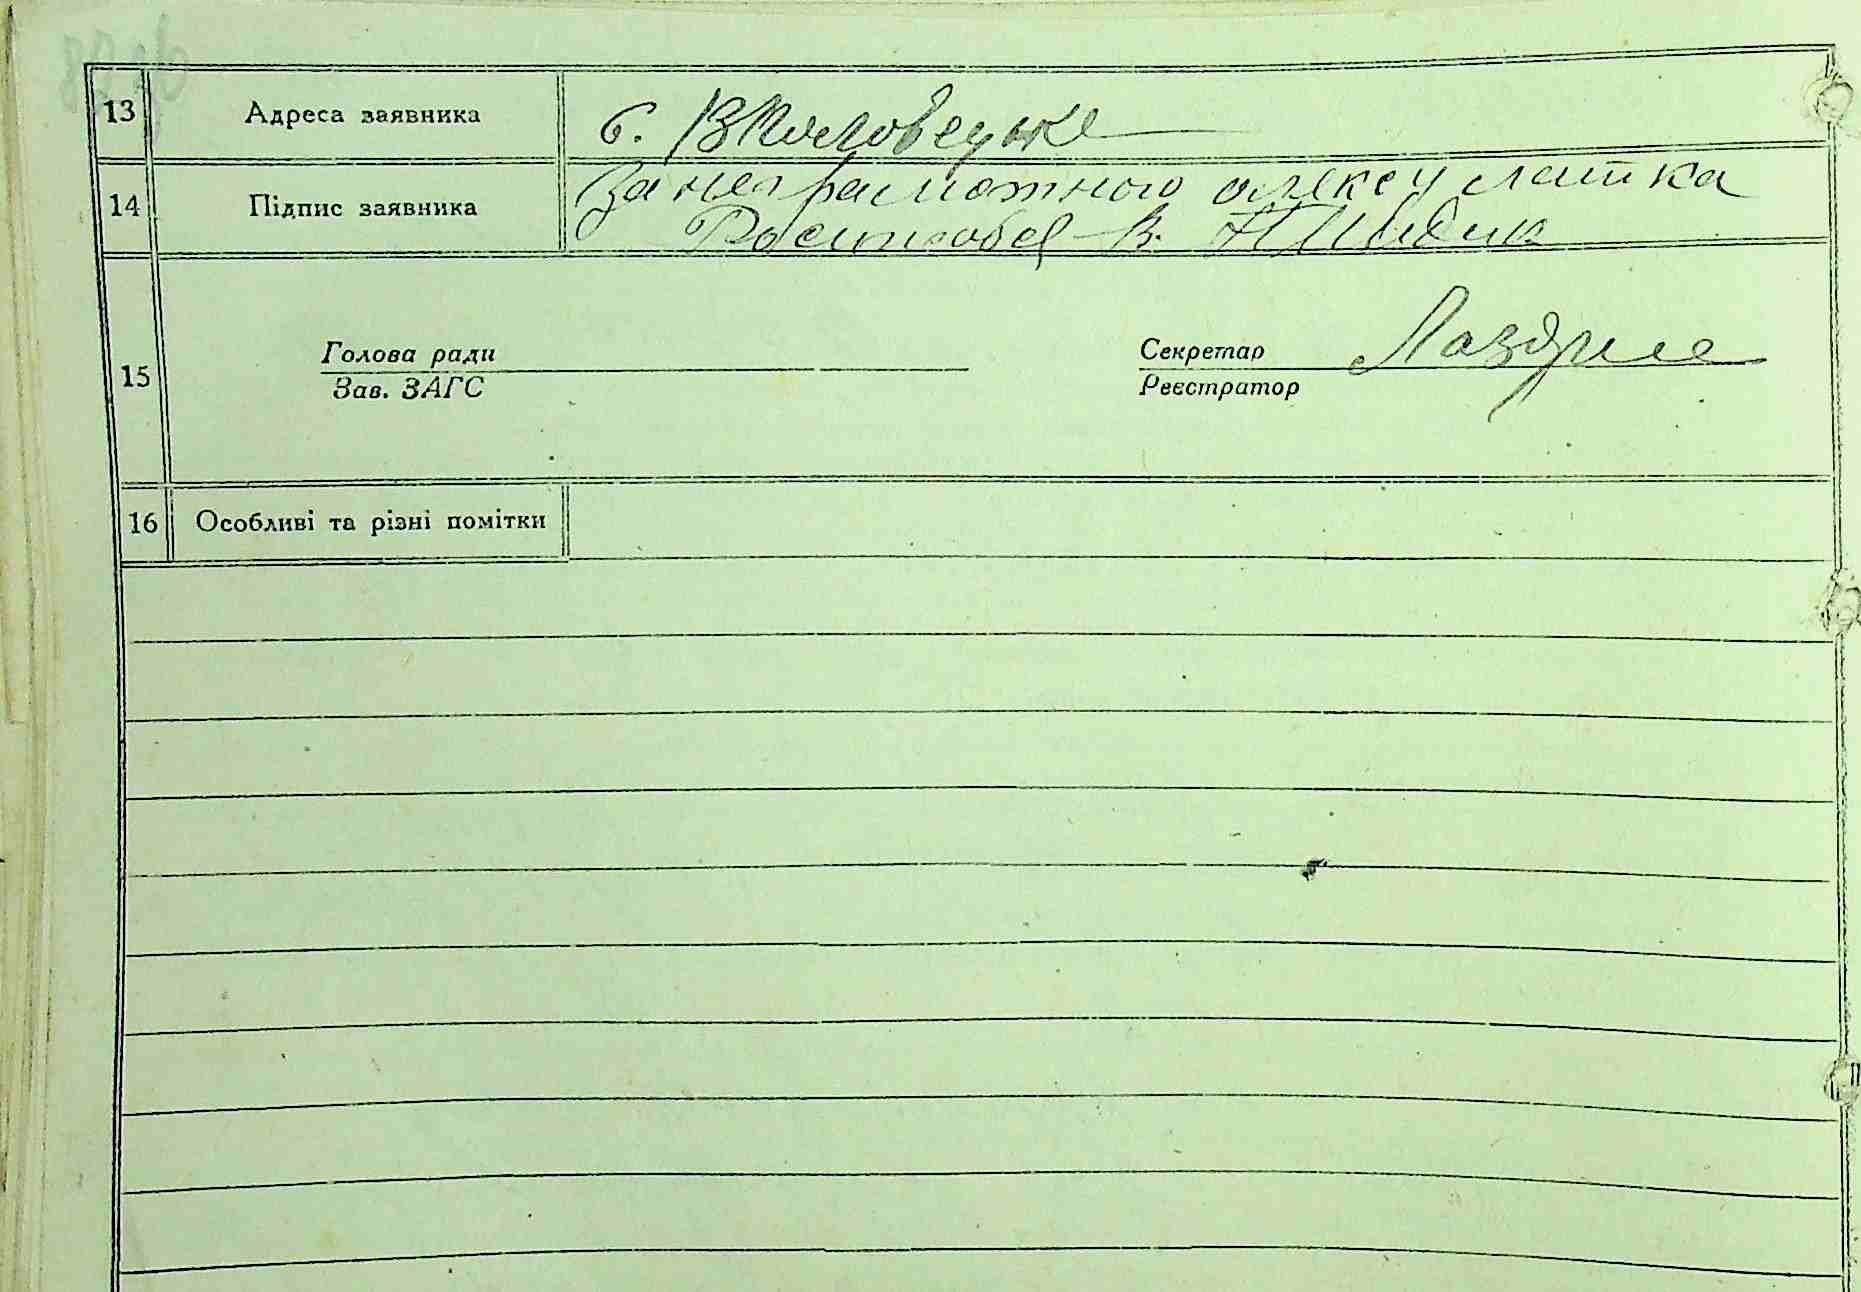 13 Адреса заявника с. В Половецьке
14 Підпис заявника За неграмотного олексу латка
Росписався
15
Голова ради
Зав. ЗАГС
Секретар
Реєстратор
16 Особливі та різні помітки